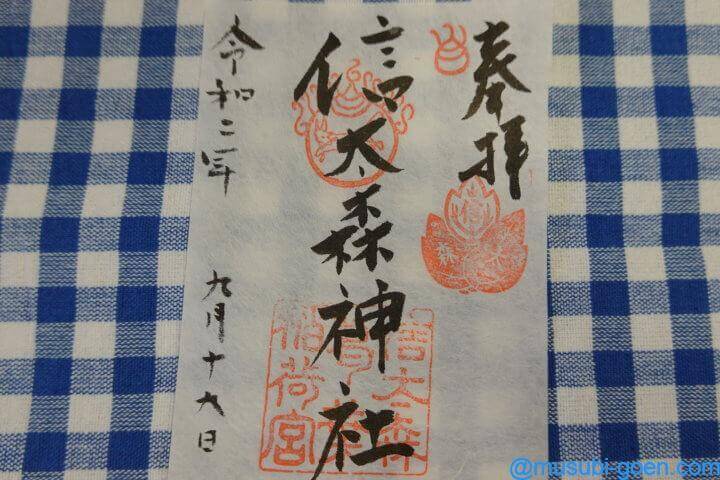 奉拝
信太森神社
信太森
葛葉
稲荷宮
令和二年 九月十九日
@musubi-goen.com